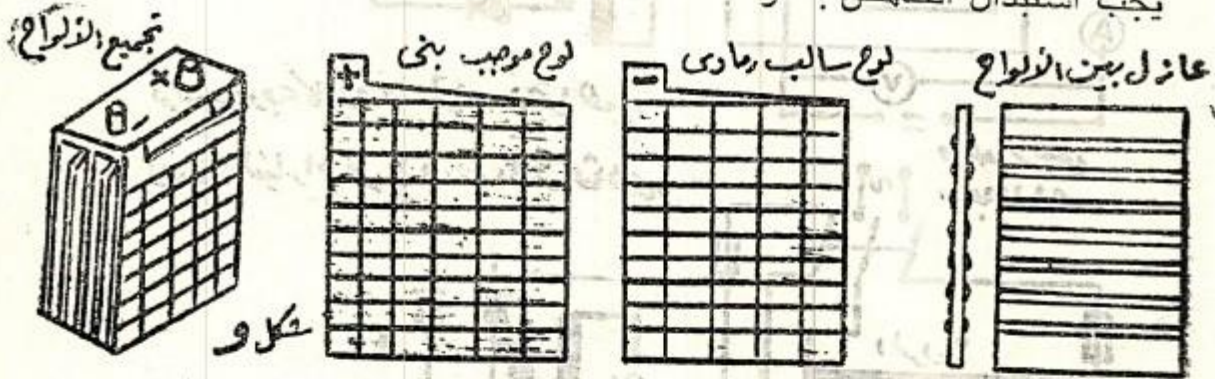 يجب استبدال
عازل بين الألواح
لوح سالب رمادى
لوح موجب بنى
تجميع الألواح
-
+
+
-
شكل و
A
V